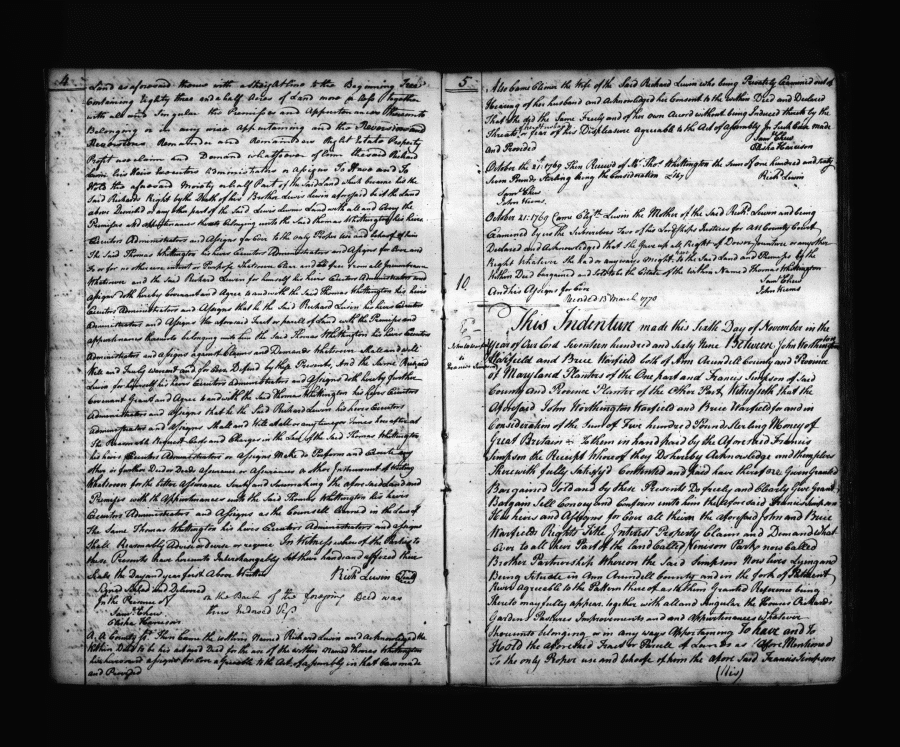 4
Land as aforesaid thence with a straight line to the Beginning Tree
Containing Eighty three and a half Acres of Land more or less Together
with all and Singular the Premises and Appurtenances thereunto
Belonging or in any wise Appertaining and the Reversion and
Reversions Remainder and Remainders Right Estate Property
Right and claim and Demand whatsoever of him the said Richard
Lewin his Heirs Executors Administrators or Assigns To Have and To
Hold the aforesaid Moiety or half Part of the Said Land which became his the
Said Richards Right by the Death of his Brother Lewis Lewin aforesaid be it the Land
above Described or any other part of the Said Lewis Lewins Land with all and Every the
Premises and appurtenances thereto belonging unto the Said Thomas Whittington his heirs
Executors Administrators and Assigns for Ever to the only Proper use and behoof of him
The Said Thomas Whittington his heirs Executors Administrators and Assigns for Ever and
To or for no other use intent or Purpose Whatsoever Clear and free from all Incumbrances
Whatsoever and the Said Richard Lewin for himself his heirs Executors Administrators and
Assigns doth hereby Covenant and Agree to and with the Said Thomas Whittington his heirs
Executors Administrators and Assigns that he the Said Richard Lewin his heirs Executors
Administrators and Assigns the aforesaid Tract or parcell of Land with the Premises and
appurtenances thereunto belonging unto him the Said Thomas Whittington his heirs Executors
Administrators and Assigns against Claims and Demands Whatsoever Shall and will
Well and Truely warrant and for Ever Defend by these Presents, And the Said Richard
Lewin for himself his heirs Executors administrators and Assigns doth hereby further
Covenant Grant and Agree to and with the Said Thomas Whittington his heirs Executors
Administrators and Assigns that he the Said Richard Lewin his heirs Executors
Administrators and Assigns Shall and Will at all or any time or Times hereafter at
The Reasonable Request Costs and Charges in the Law of the Said Thomas Whittington
his heirs Executors Administrators or Assigns Make do Perform and Execute any
other or further Deed or Deeds Assurance or Assurances or other Instrument of Writing
Whatsoever for the better Assurance Surety and Sure making the aforesaid Land and
Premises with the Appurtenances unto the Said Thomas Whittington his heirs
Executors Administrators and Assigns as the Counsell learned in the Law of
The Same Thomas Whittington his heirs Executors Administrators and assigns
Shall Reasonably Advise devise or require In Witness whereof the Parties to
these Presents have hereunto Interchangeably Set their hands and affixed their
Seals the day and year first Above Written
Richd Lewin (Seal)
Signed Sealed and Delivered
In the Presence of
on the Back of the foregoing Deed was
thus Indorsed Vizt
Saml Chew
Elisha Harrison
A. A. County Sct. Then Came the within Named Richard Lewin and Acknowledged the
Within Deed to be his act and Deed for the use of the within Named Thomas Whittington
his heirs and assigns for Ever agreeable to the Act of Assembly in that Case made
and Provided
5
Also Came Elinor the Wife of the Said Richard Lewin who being Privately Examined out of
Hearing of her husband and Acknowledged her Consent to the within Deed and Declared
That She did the Same Freely and of her own Accord without being Induced thereto by the
Threats or fear of his Displeasure Agreeable to the Act of Assembly In Such Case made
And Provided
Saml Chew
Elisha Harrison
October the 21st 1769 Then Received of Mr Thos Whittington the Sum of one hundred and sixty
Seven Pounds Sterling being the Consideration
Richd Lewin
Saml Chew
John Weems
October 21: 1769 Came Elizth Lewin the Mother of the Said Richd Lewin and being
Examined by us the Subscribers Two of his Lordships Justices for AA County Court
Declared and Acknowledged that She Gave up all Right of Dower Jointure or any other
Right Whatever She had or any ways Might to the Said Land and Premises by the
Within Deed bargained and Sold to the Estate of the within Named Thomas Whittington
And his Assigns for Ever
Saml Chew
John Weems
10
Recorded 15 March 1770
This Indenture made this Sixth Day of November in the
Year of Our Lord Seventeen hundred and Sixty Nine Between John Worthington
Warfield and Brice Warfield both of Ann Arundell County and Province
of Maryland Planters of the One part and Francis Simpson of Said
County and Province Planter of the Other Part, Witnesseth that the
Aforesaid John Worthington Warfield and Brice Warfield for and in
Consideration of the Sum of Five hundred Pounds Sterling Money of
Great Britain to them in hand paid by the Aforesaid Francis
Simpson the Receipt Whereof they Do hereby Acknowledge and themselves
Therewith fully Satisfyd Contented and Paid have therefore Given Granted
Bargained Sold and by these Presents Do freely and Clearly Give Grant
Bargain Sell Convey and Confirm unto him the Aforesaid Francis Simpson
His heirs and Assigns for Ever all them the Aforesaid John and Brice
Warfield Rights Title Interest Property Claim and Demand What
Ever to all their Part of the Land Called Venison Park now Called
Brother Partnership Whereon the Said Simpson Now lives Lying and
Being Situate in Ann Arundell County and in the fork of Patuxent
River agreeable to the Pattern thereof as to them Granted Reference being
thereto may fully appear together with all and Singular the Houses Orchards
Gardens Pastures Improvements and and Appurtenances Whatsoever
Thereunto belonging or in any ways Appertaining To have and To
Hold the aforesaid Tract or Parcell of Land as Afore Mentioned
To the only Proper use and behoofe of him the afore Said Francis Simpson
(His)